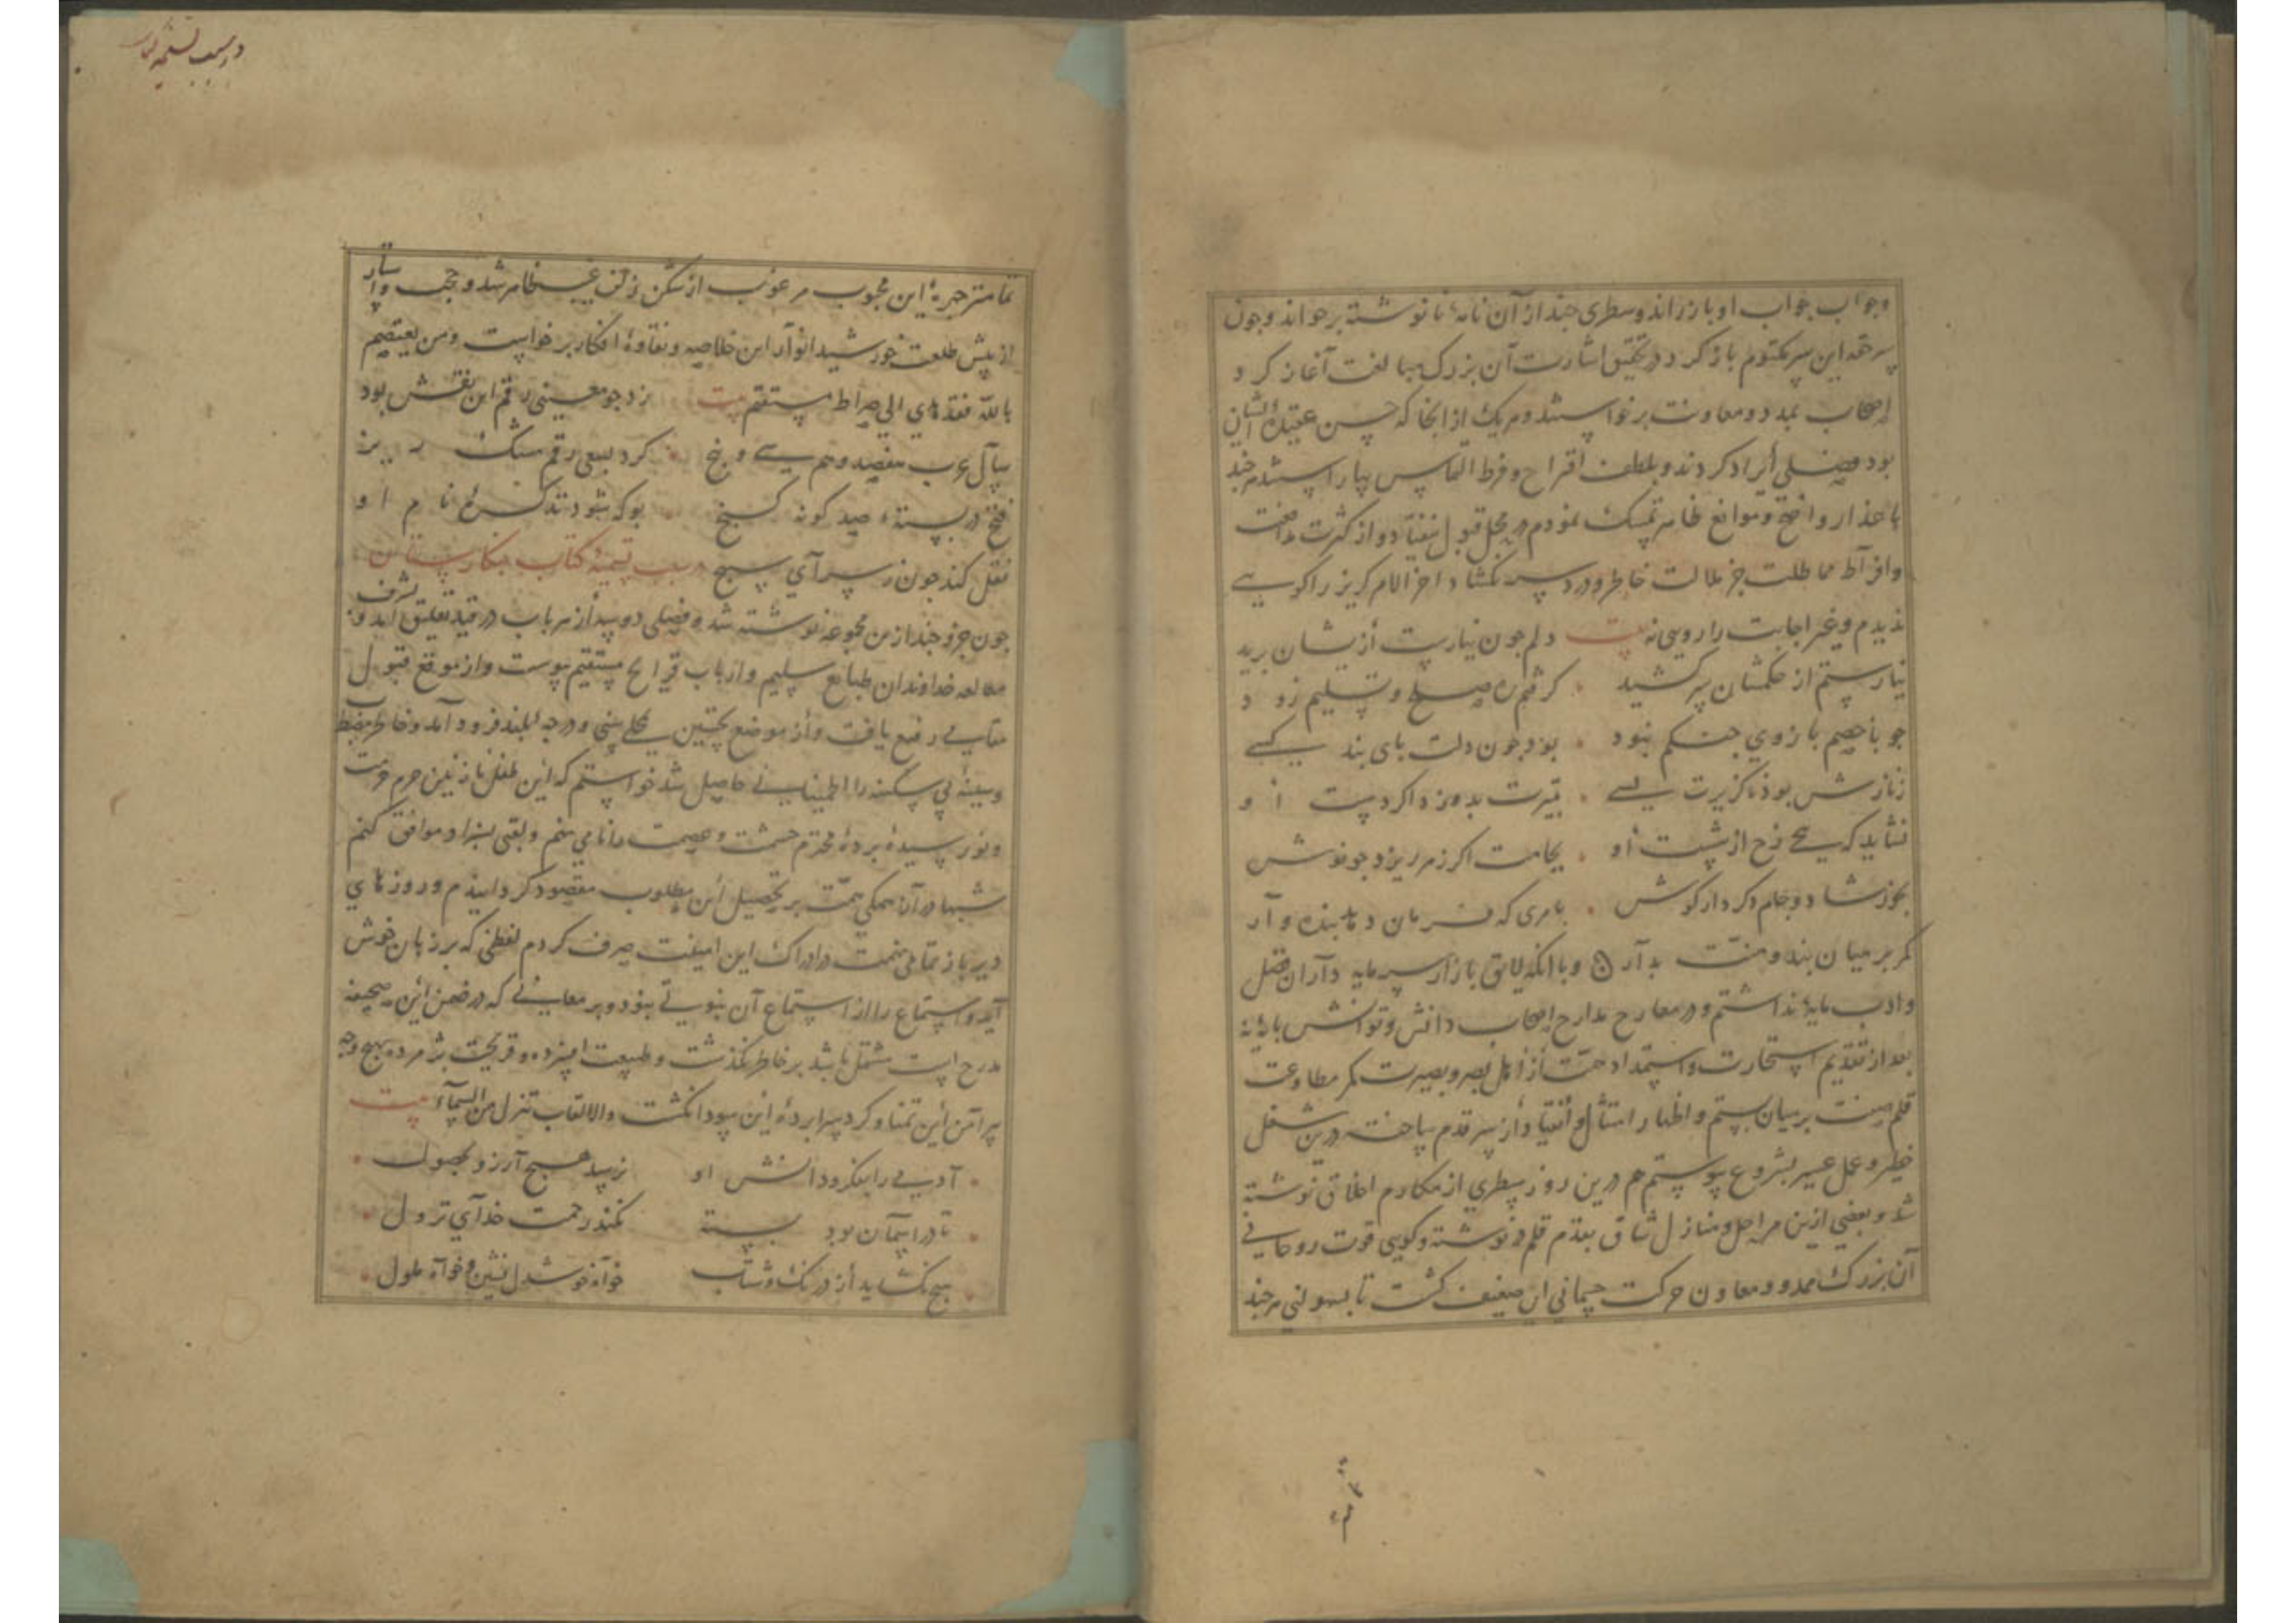 و جواب جواب او باز راند و سطری چند از آن نامهٔ نانوشته برخواند و چون
سر حقهٔ این سر مکتوم باز کرد و در تحقیق اشارت آن بزرگ مبالغت آغاز کرد
اصحاب بمدد و معاونت برخواستند و هر یک از آنجا که حسن عقیدهٔ ایشان
بود فصلی ایراد کردند و بلطف اقتراح و فرط التماس بیاراستند هر چند
باعذار واضح و موانع ظاهر تمسک نمودم در محل قبول نیفتاد و از کثرت مدافعت
و افراط مماطلت جز ملالت خاطر و درد سر نگشاد آخر الامر گریز را کویی
ندیدم و غیر اجابت را رویی نه بیت دلم چون نیارست ازیشان برید
نیارستم از حکمشان سر کشید گرفتم ره صلح و تسلیم زود
چو با خصم بازوی جنگم نبود بود چون دلت پای بند کسی
ز نازش بود ناگزیرت بسی بتیرت بدوزد اگر دست او
نشاید که پیچی رخ از شست او بجامت اگر زهر ریزد چو نوش
بخور شاد و جام دگر دار گوش بامری که فرمان دهد بنده وار
کمر بر میان بند و منت بدار و با آنکه لایق بازار سرمایه داران فضل
و ادب مایهٔ نداشتم و در معارج مدارج اصحاب دانش و توانش پایهٔ نه
بعد از تقدیم استخارت و استمداد همت از اهل بصر و بصیرت کمر مطاوعت
قلم صفت بر میان بستم و اظهار امتثال و انقیاد از سر قدم ساخته درین شغل
خطیر و عمل عسیر بشروع پیوستم هم درین روز سطری از مکارم اخلاق نوشته
شد و بعضی ازین مراحل و منازل شاق بقدم قلم نوشته و گویی قوت روحانی
آن بزرگ ممد و معاون حرکت جسمانی این ضعیف گشت تا بسهولتی هر چند
تمامتر چهرهٔ این محبوب مرغوب از شکن زلف غیب ظاهر شد و حجب و استار
از پیش طلعت خورشید انوار این خلاصه و نقاوهٔ افکار برخواست و من یعتصم
بالله فقد هدی الی صراط مستقیم بیت زد چو معینی رقم این نقش بود
سال عرب هفصد و هم سی و پنج کرد بسعی رقم مشک ریز
فتح در بستهٔ صد گونه گنج بو که شود تذکرهٔ نام او
نقل کند چون ز سرای سپنج در سبب تسمیهٔ کتاب نگارستان
چون جزو چند ازین مجموعه نوشته شد و فصلی دو سه از هر باب در قید تعلیق آمد و بشرف
مطالعه خداوندان طبایع سلیم و ارباب قرایح مستقیم پیوست و از موقع قبول
مقامی رفیع یافت و از موضع تحسین بمحلی سنی و درجهٔ بلند فرود آمد و خاطر مضطرب
و سینهٔ بی سکینه را اطمینانی حاصل شد خواستم که این طفل نازنین حرم حرمت
و نورسیدهٔ پردهٔ محترم حشمت و عصمت را نامی نهم و لقبی بسزا و موافق کنم
شبها در آن همگی همت بر تحصیل این مطلوب مقصود گردانیدم و روزهای
دیر باز تمامی نهمت در ادراک این امنیت صرف کردم لفظی که بر زبان خوش
آید و استماع را از استماع آن نبوتی نبود و بر معانی که در ضمن این صحیفه
مدرج است مشتمل باشد بر خاطر نگذشت و طبیعت افسرده و قریحت پژمرده بهیچ وجه
پیرامن این تمنا و گرد سراپردهٔ این سودا نگشت والالقاب تنزل من السماء بیت
آدمی را بفکر و دانش او نرسد هیچ آرزو بحصول
تا در آسمان بود بسته نکند رحمت خدای نزول
هیچ نگشاید از درنگ و شتاب خواه خوشدل نشین و خواه ملول